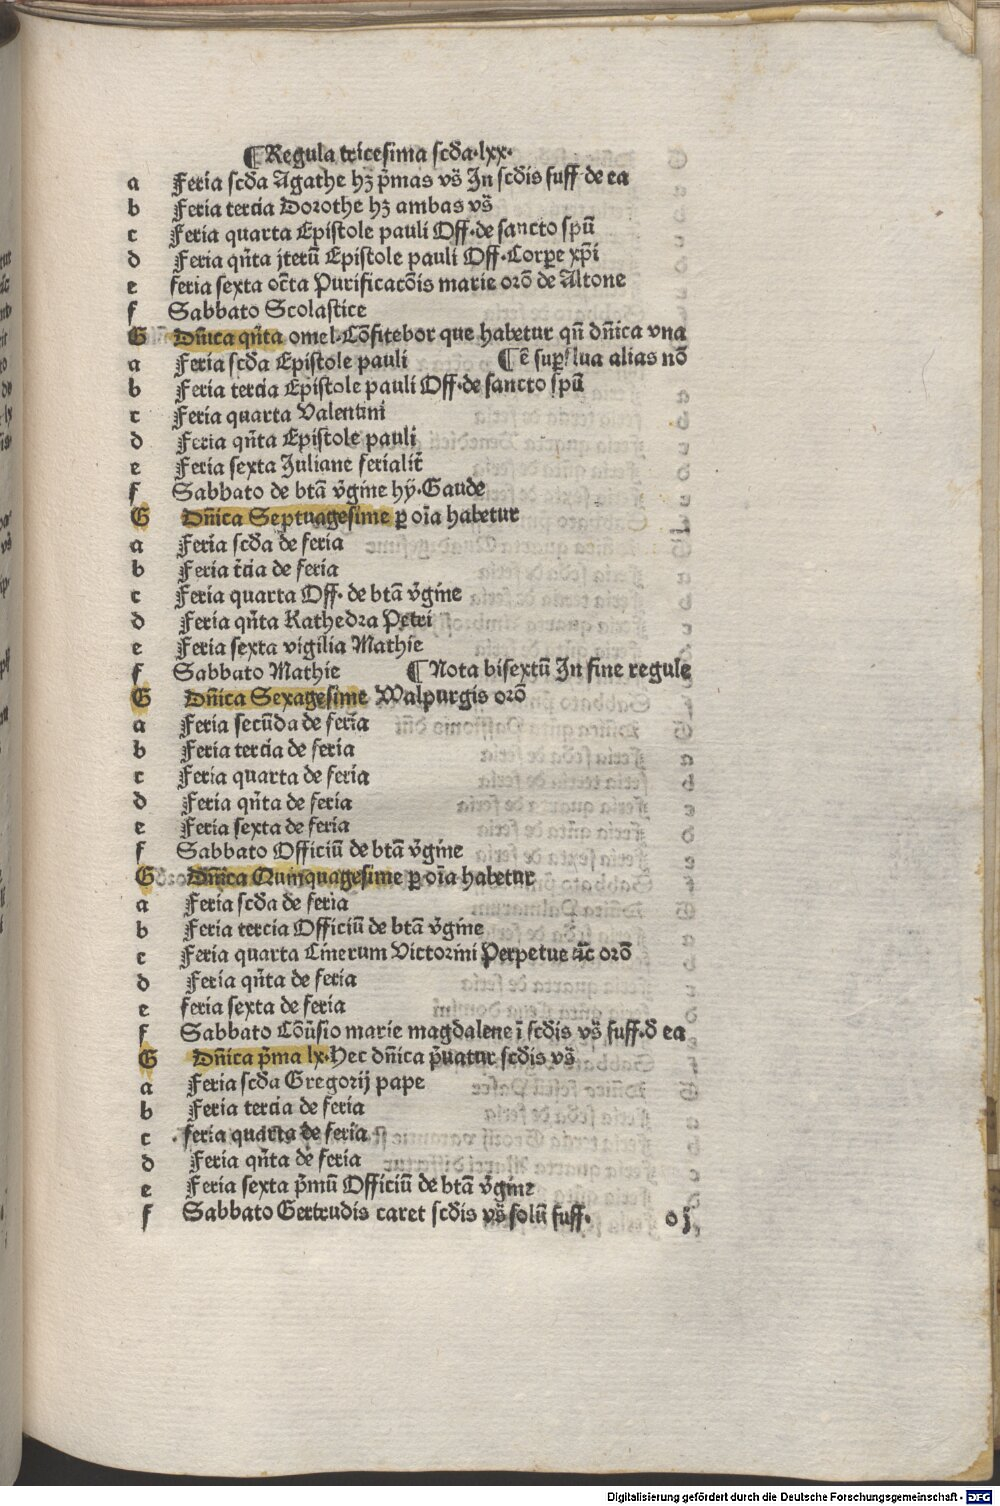 ¶Regula tricesima scd̄a·lxx·
a Feria scd̄a Agathe hꝫ p̄mas vs̄ In scd̄is suff·de ea
b Feria tercia Dorothe hꝫ ambas vs̄
c Feria quarta Epistole pauli Off·de sancto spū
d Feria qn̄ta jterū Epistole pauli Off·Corꝑe xp̄i
e feria sexta oct̄a Purificacōis marie orō de Altone
f Sabbato Scolastice
G Dn̄ica qn̄ta omel·Cōfitebor que habetur qn̄ dn̄ica vna
a Feria scd̄a Epistole pauli ¶ē suꝑflua alias nō
b Feria tercia Epistole pauli Off·de sancto spū
c Feria quarta Valentini
d Feria qn̄ta Epistole pauli
e Feria sexta Juliane ferialit̄
f Sabbato de btā v̄gine hy̅·Gaude
G Dn̄ica Septuagesime ꝑ oīa habetur
a Feria scd̄a de feria
b Feria t̄cia de feria
c Feria quarta Off· de btā v̄gine
d Feria qn̄ta Kathedra Petri
e Feria sexta vigilia Mathie
f Sabbato Mathie ¶Nota bisextū In fine regule
G Dn̄ica Sexagesime Walpurgis orō
a Feria secūda de feria
b Feria tercia de feria
c Feria quarta de feria
d Feria qn̄ta de feria
e Feria sexta de feria
f Sabbato Officiū de btā v̄gine
G Dn̄ica Quinquagesime ꝑ oīa habetur
a Feria scd̄a de feria
b Feria tercia Officiū de btā v̄gine
c Feria quarta Cinerum Victorini Perpetue ac̄ orō
d Feria qn̄ta de feria
e feria sexta de feria
f Sabbato Cōu̅sio marie magdalene ī scd̄is vs̄ suff·d̄ ea
G Dn̄ica p̄ma lx·Hec dn̄ica p̄uatur scd̄is vs̄
a Feria scd̄a Gregorij pape
b Feria tercia de feria
c feria quarta de feria
d Feria qn̄ta de feria
e Feria sexta p̄mū Officiū de btā v̄gine
f Sabbato Gertrudis caret scd̄is vs̄ solū suff· o j
Digitalisierung gefördert durch die Deutsche Forschungsgemeinschaft · DFG